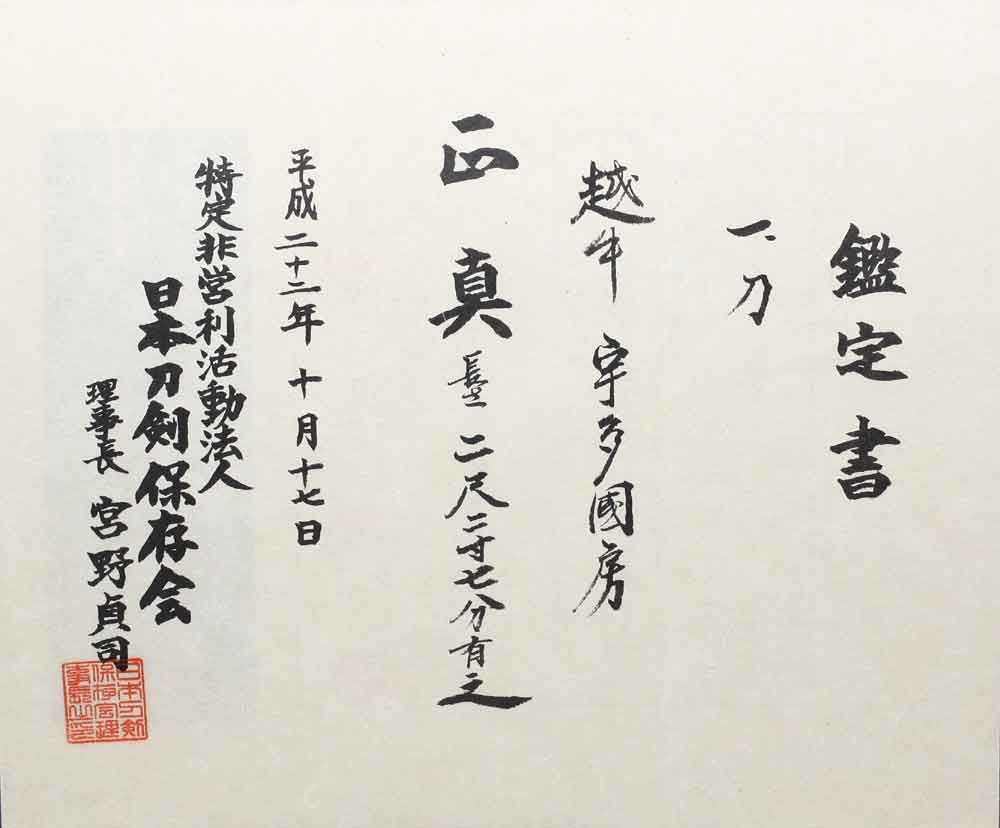 鑑定書
一、刀
越中 宇多國房
正真 長サ 二尺二寸七分有之
平成二十二年十月十七日
特定非営利活動法人
日本刀剣保存会
理事長 宮野貞司
日本刀剣
保存会理
事長之印